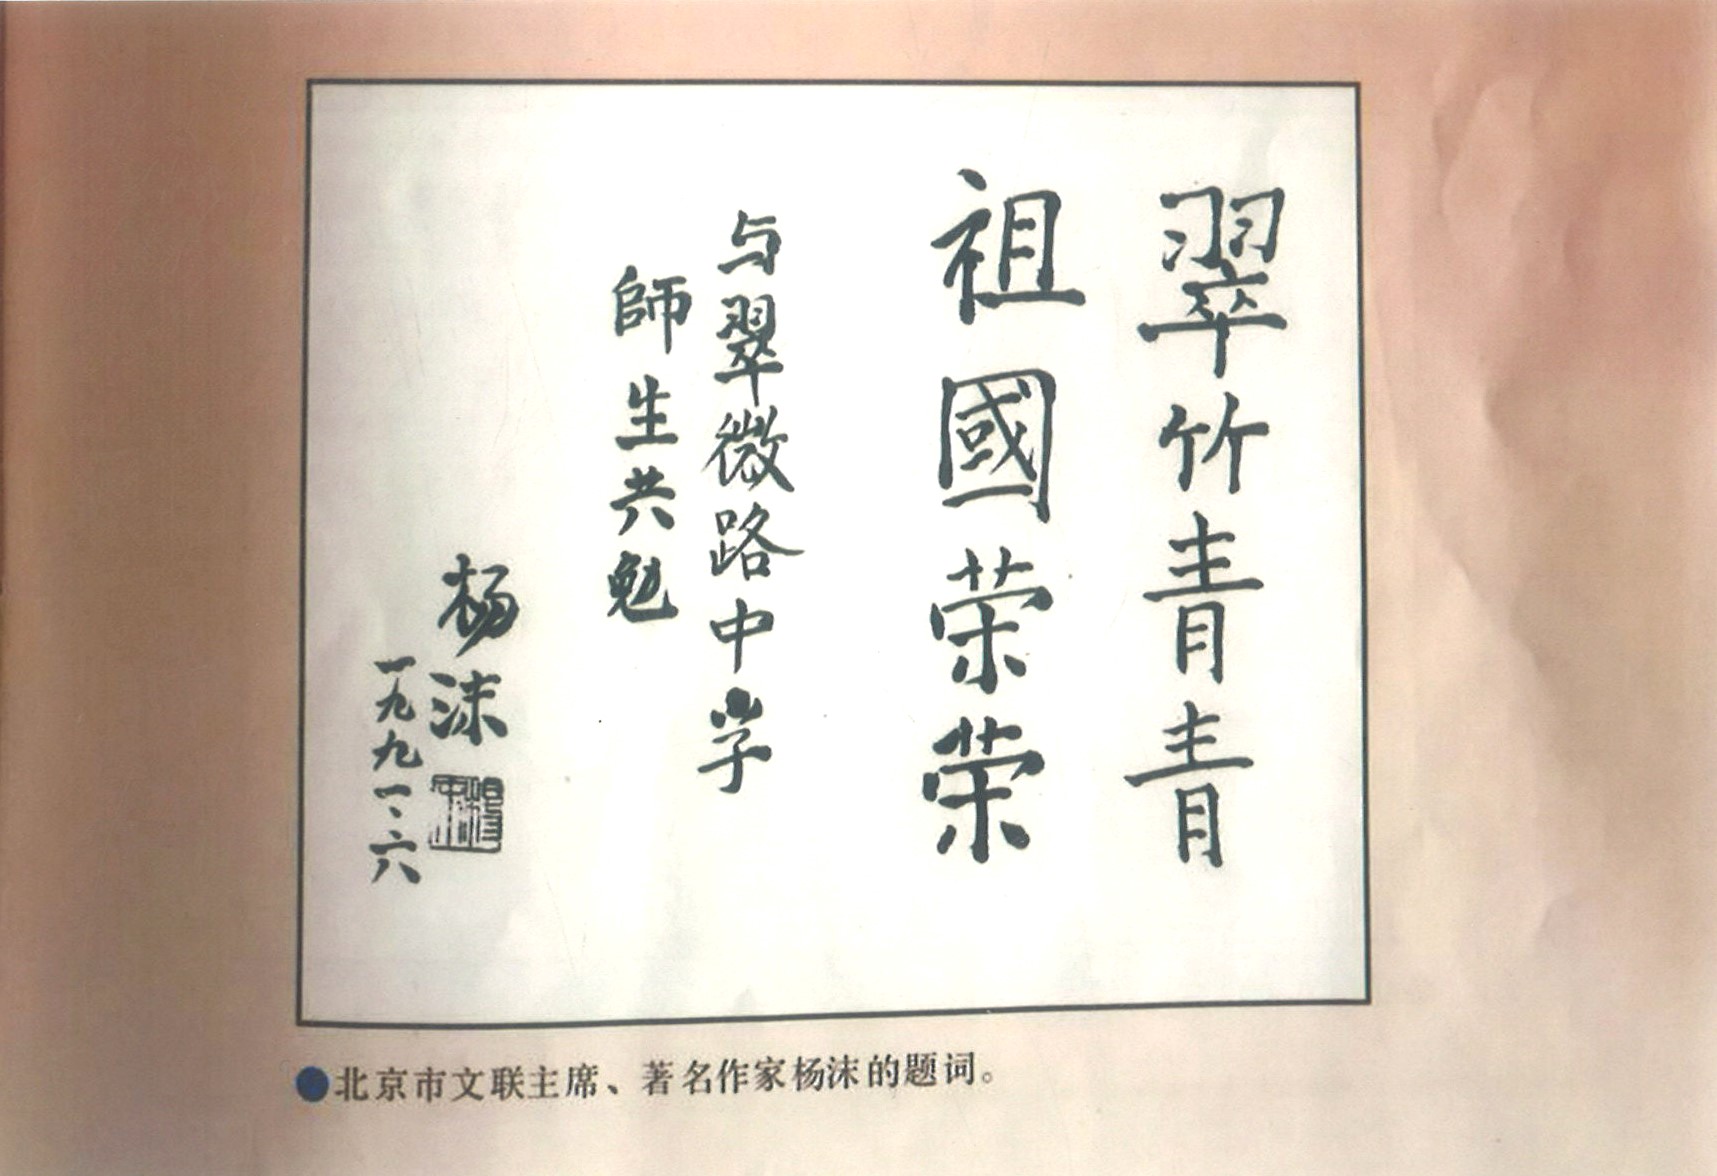 翠竹青青
祖國荣荣
与翠微路中学
師生共勉
杨沫
一九九一、六
北京市文联主席、著名作家杨沫的题词。